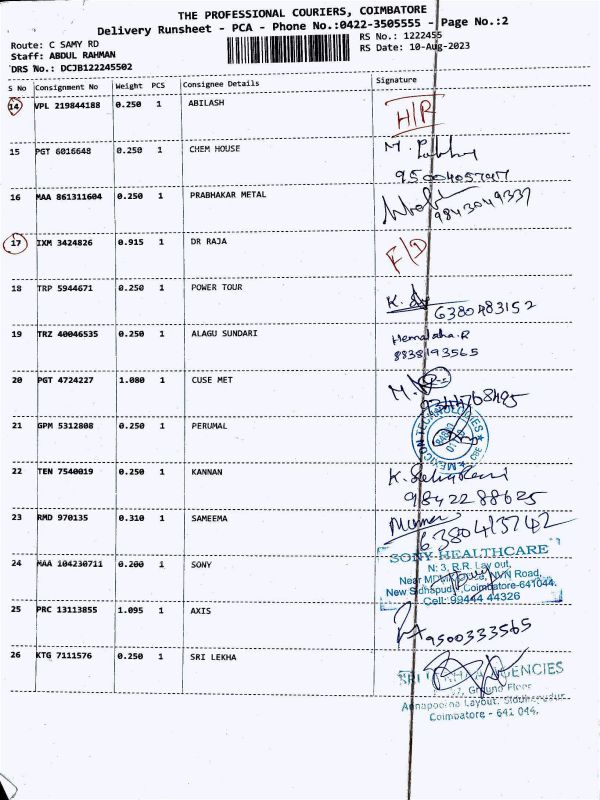 THE PROFESSIONAL COURIERS, COIMBATORE
Delivery Runsheet - PCA - Phone No.:0422-3505555 - Page No.:2
Route: C SAMY RD
Staff: ABDUL RAHMAN
DRS No.: DCJB122245502
RS No.: 1222455
RS Date: 10-Aug-2023
S No Consignment No Weight PCS Consignee Details Signature
14 VPL 219844188 0.250 1 ABILASH H/R
15 PGT 6016648 0.250 1 CHEM HOUSE M.
16 MAA 861311604 0.250 1 PRABHAKAR METAL 9843049337
17 IXM 3424826 0.915 1 DR RAJA F/D
18 TRP 5944671 0.250 1 POWER TOUR K. 6380483152
19 TRZ 40046535 0.250 1 ALAGU SUNDARI Hemalatha.R
8838193565
20 PGT 4724227 1.080 1 CUSE MET M.
21 GPM 5312808 0.250 1 PERUMAL TECHNOLOGIES
22 TEN 7540019 0.250 1 KANNAN K.
9842288625
23 RMD 970135 0.310 1 SAMEEMA
24 MAA 104230711 0.200 1 SONY SONY HEALTHCARE
N: 3, R.R. Lay out,
Near NVN Road,
New Sidhapudur, Coimbatore-641044.
Cell: 99444 44326
25 PRC 13113855 1.095 1 AXIS 9500333565
26 KTG 7111576 0.250 1 SRI LEKHA SRI AGENCIES
Ground Floor
Annapoorna Layout,
Coimbatore - 641 044.